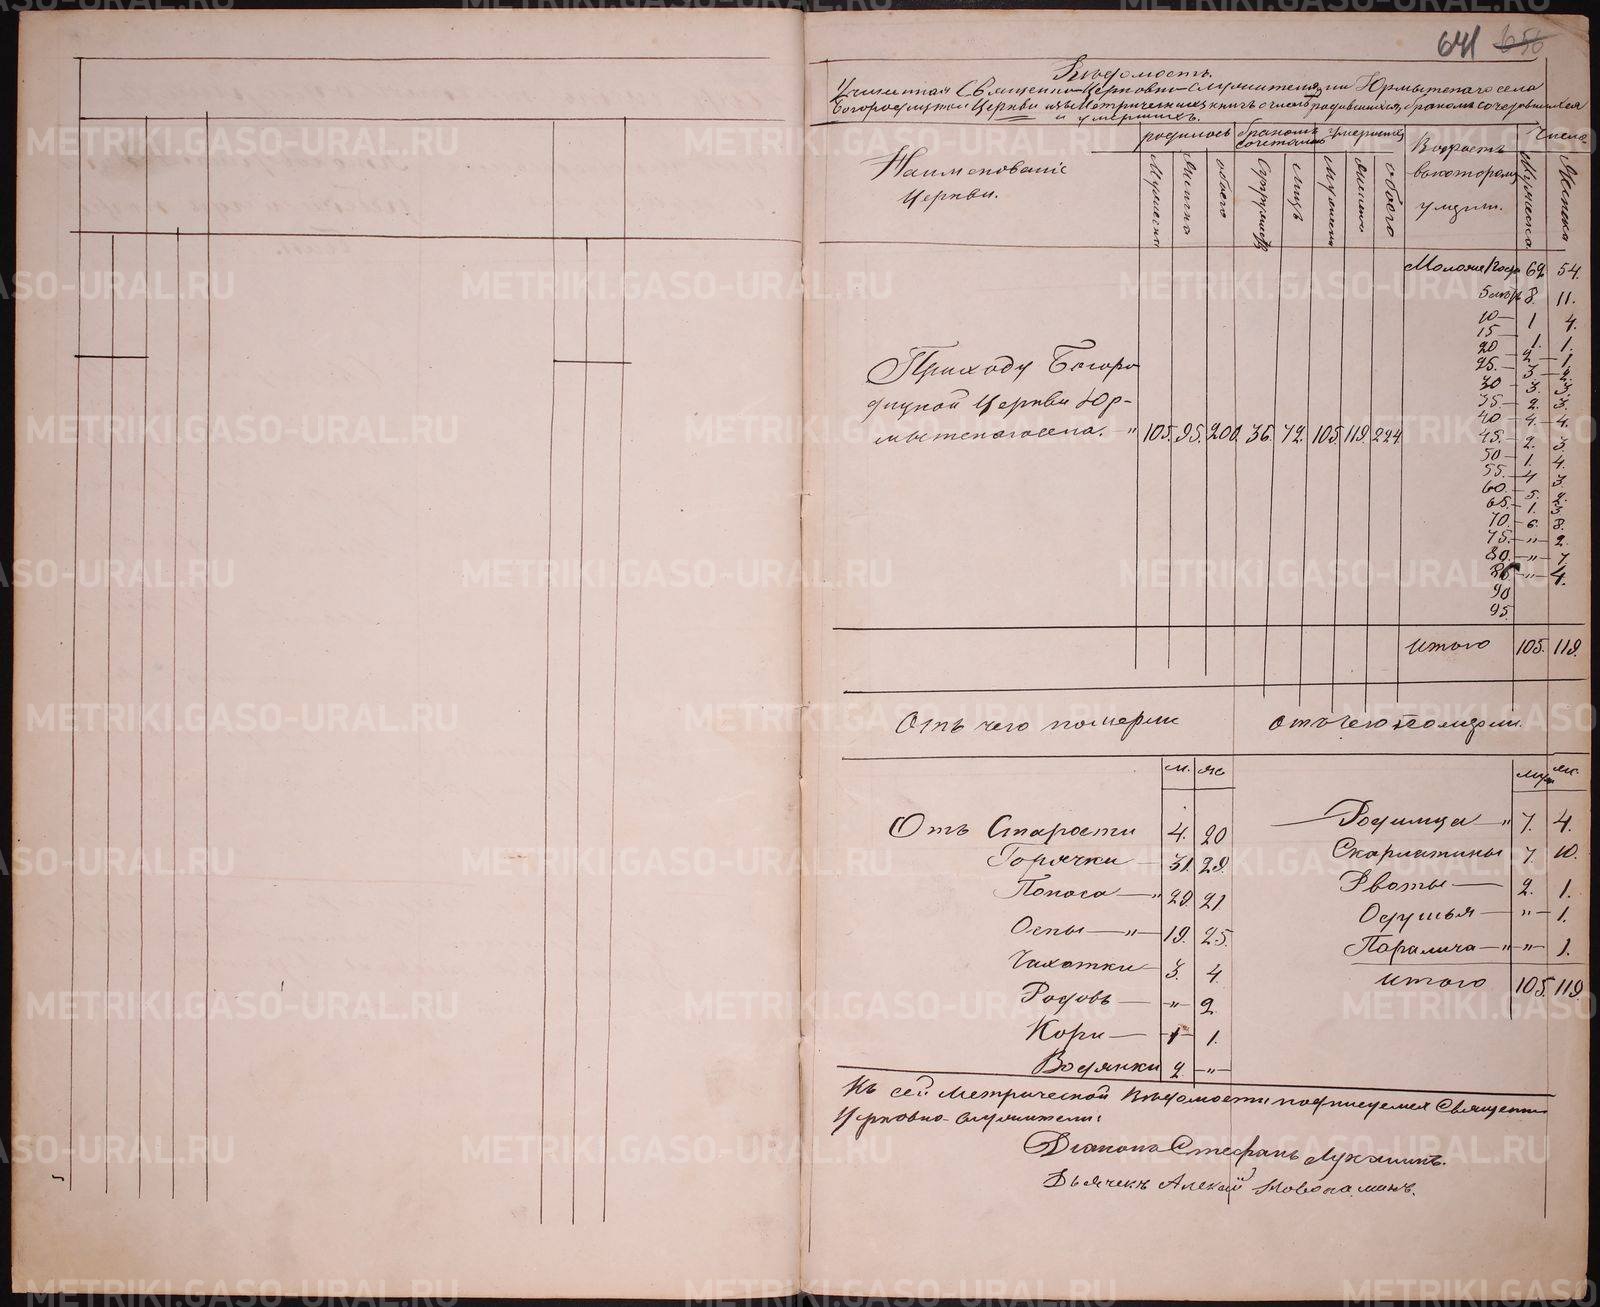 641 656
Вѣдомость.
Учиненная Священно-Церковно-Служителями Юрмытскаго села
Богородицкой Церкви изъ Метрическихъ книгъ о числѣ родившихся, бракомъ сочетавшихся
и умершихъ.
Наименованіе
Церкви.
родилось
бракомъ сочеталось
умершихъ
Возрастъ
въ которомъ
умерли.
Число
Мужеска
Женска
обоего
Супружествъ
лицъ
Мужеска
Женска
обоего
Мужеска
Женска
Приходу Богоро
дицкой Церкви Юр-
мытскаго села. " 105. 95. 200. 36. 72. 105. 119. 224
Моложе 1 года 62. 54.
5 лѣтъ 8. 11.
10 — 1 4.
15 — 1. 1.
20 — 2. — 1.
25. — 3 — 2.
30 — 3. 3.
35. — 2. 3.
40 — 4. — 4.
45. — 2. 3.
50 — 1. 4.
55. — 4 3.
60. — 5. 2.
65. — 1. 3.
70. — 6. 8.
75. — " — 2.
80. — " — 7
85 — " — 4.
90
95.
Итого 105. 119.
Отъ чего померли
Отъ чего померли.
м. же
муж ж.
Отъ Старости 4. 20
Горячки — 31. 29.
Поноса — " 29. 21
Оспы — " — 19. 25.
Чахотки — 3. 4
Родовъ — " — 2.
Кори — 1 — 1.
Водянки 2. — " —
Родимца — " 7. 4.
Скарлатины 7. 10.
Рвоты — 2. 1.
Одушья — " — 1.
Паралича — " — " — 1.
Итого 105. 119.
Къ сей Метрической Вѣдомости подписуемся Священно
Церковно-служители:
Діаконъ Стефанъ Лукашинъ.
Дьячекъ Алексій
METRIKI.GASO-URAL.RU